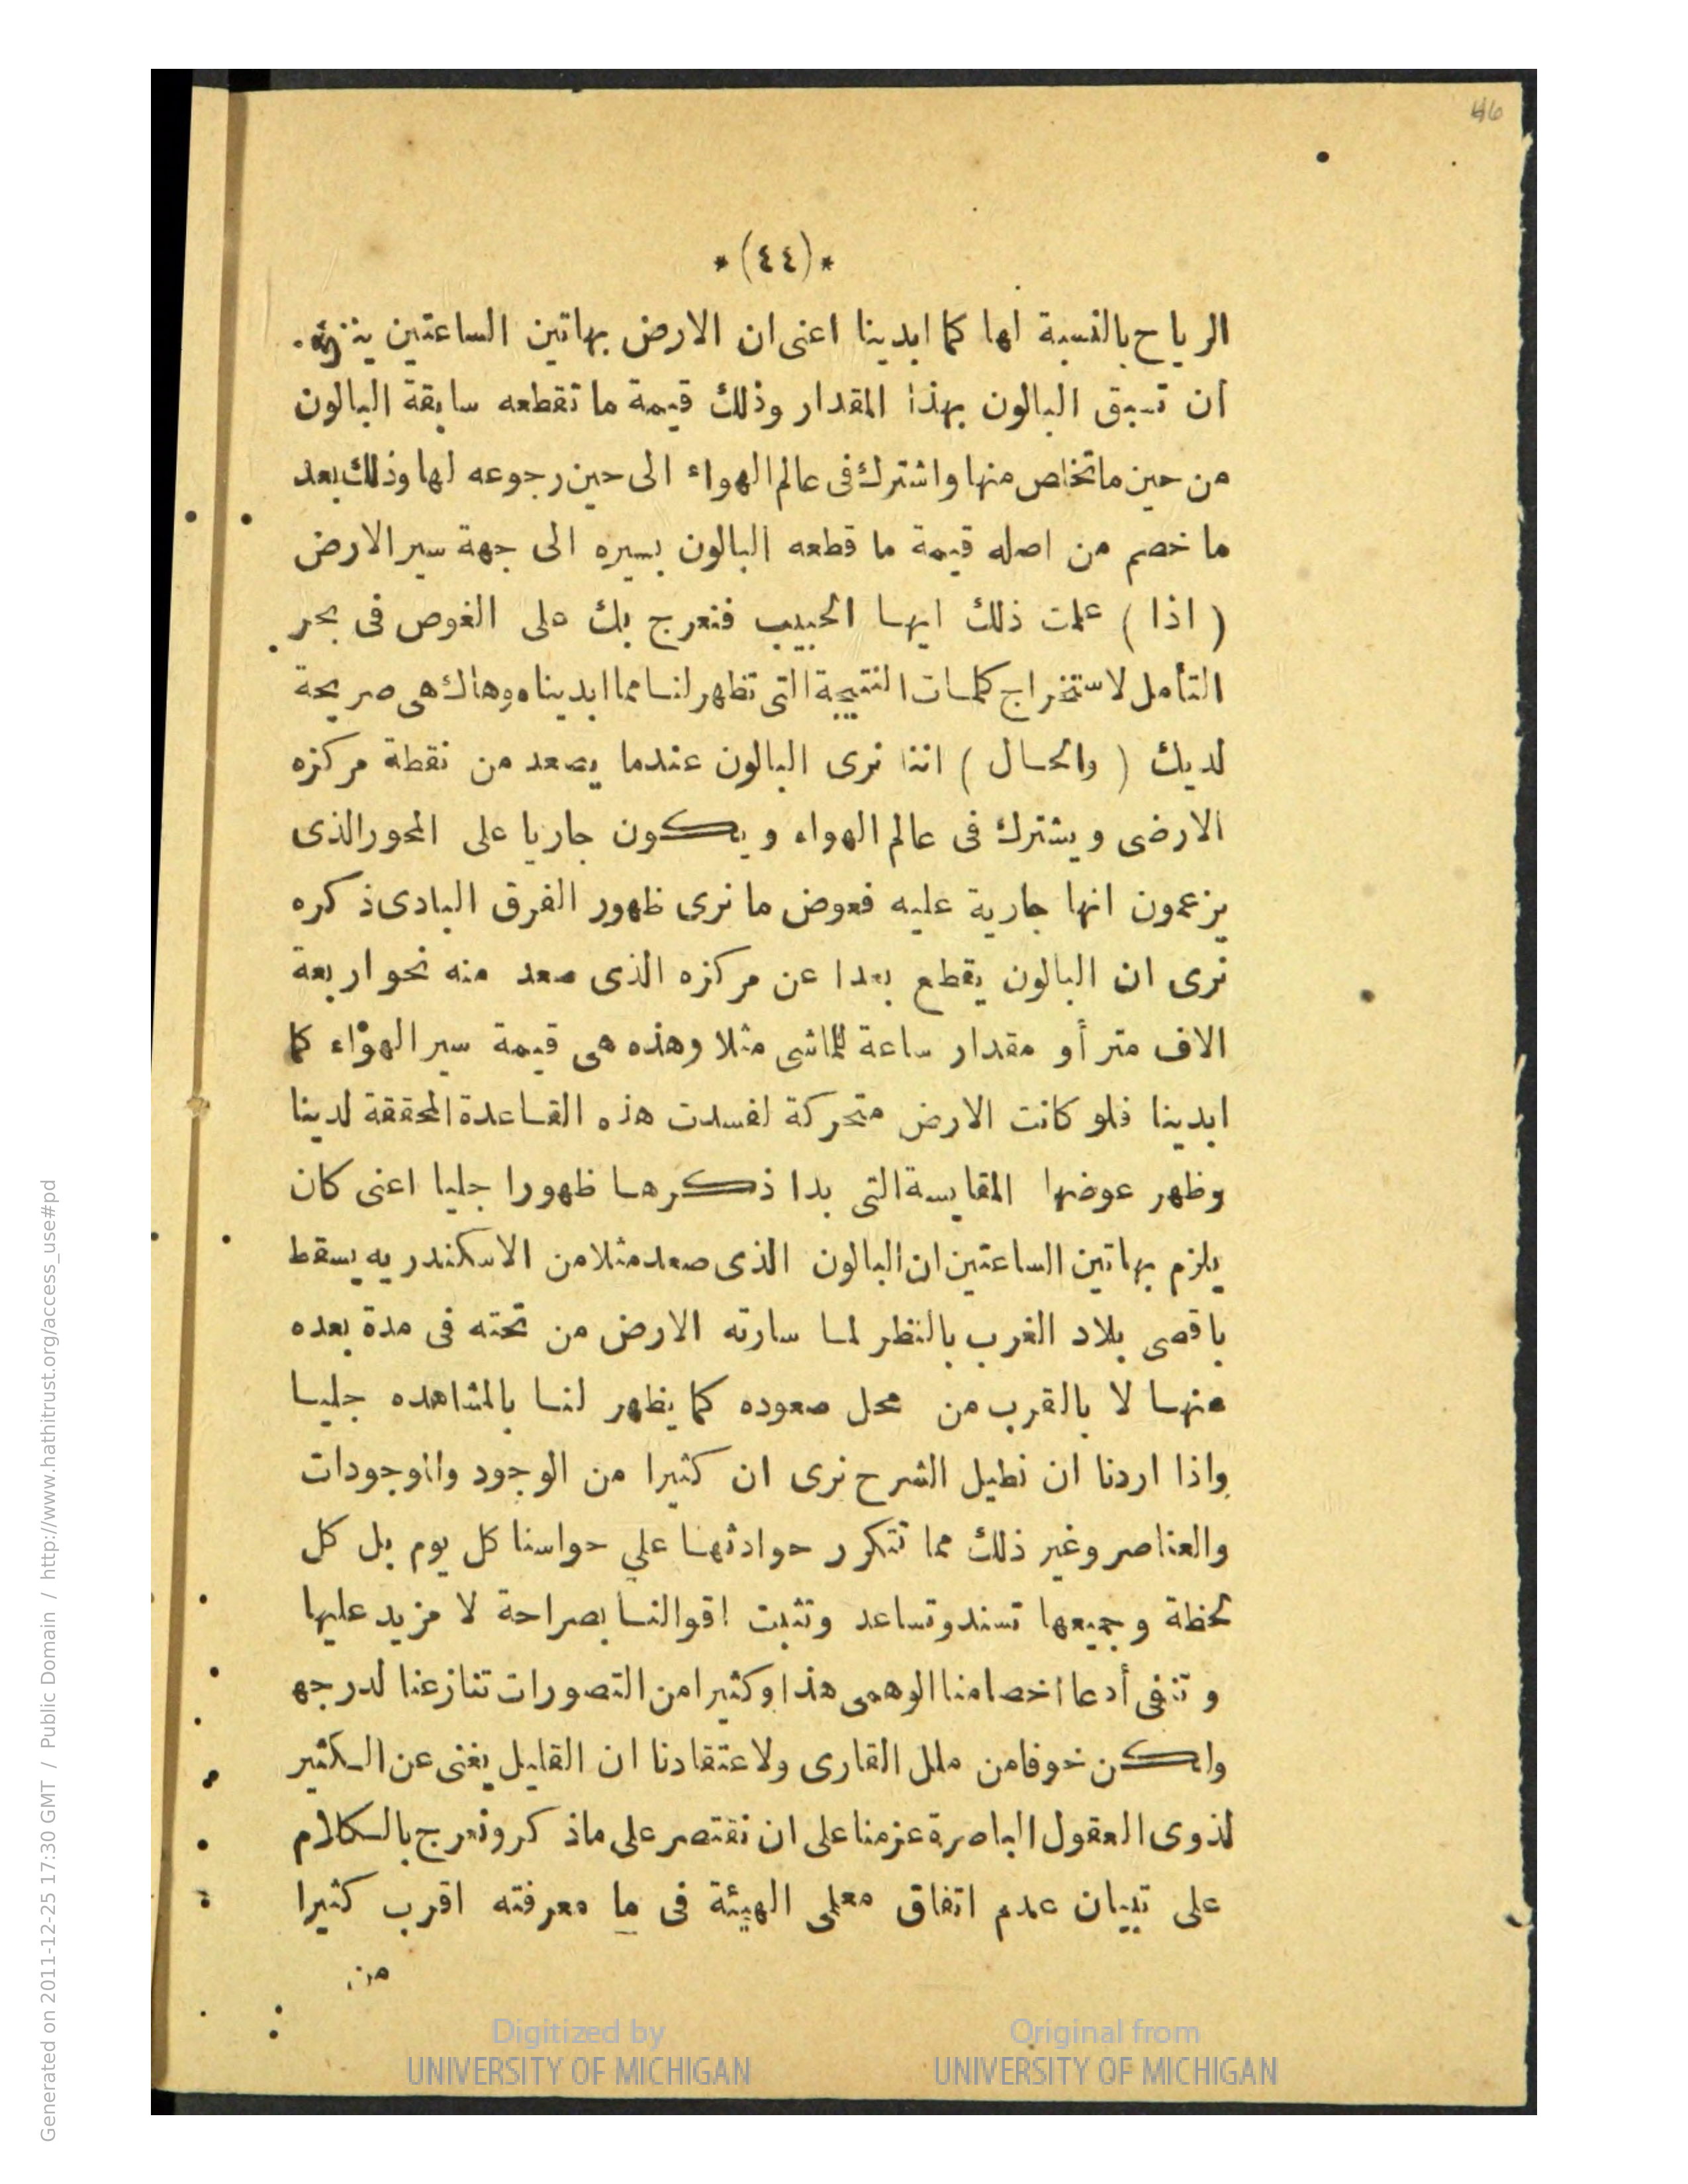 46
*(٤٤)*
الرياح بالنسبة لها كما ابدينا اعنى ان الارض بهاتين الساعتين
ان تسبق البالون بهذا المقدار وذلك قيمة ما تقطعه سابقة البالون
من حين ما تخلص منها واشترك فى عالم الهواء الى حين رجوعه لها وذلك بعد
ما خصم من اصله قيمة ما قطعه البالون بسيره الى جهة سير الارض
( اذا ) علمت ذلك ايها الحبيب فنعرج بك على الغوص فى بحر
التأمل لاستخراج كلمات النتيجة التى تظهر لنا مما ابديناه وهاك هى صريحة
لديك ( والحال ) اننا نرى البالون عندما يصعد من نقطة مركزه
الارضى ويشترك فى عالم الهواء ويكون جاريا على المحور الذى
يزعمون انها جارية عليه فعوض ما نرى ظهور الفرق البادى ذكره
نرى ان البالون يقطع بعدا عن مركزه الذى صعد منه نحو اربعة
الاف متر أو مقدار ساعة للماشى مثلا وهذه هى قيمة سير الهواء كما
ابدينا فلو كانت الارض متحركة لفسدت هذه القاعدة المحققة لدينا
وظهر عوضها المقايسة التى بدا ذكرها ظهورا جليا اعنى كان
يلزم بهاتين الساعتين ان البالون الذى صعد مثلا من الاسكندريه يسقط
باقصى بلاد الغرب بالنظر لما سارته الارض من تحته فى مدة بعده
منها لا بالقرب من محل صعوده كما يظهر لنا بالمشاهده جليا
واذا اردنا ان نطيل الشرح نرى ان كثيرا من الوجود والموجودات
والعناصر وغير ذلك مما تتكرر حوادثها على حواسنا كل يوم بل كل
لحظة وجميعها تسند وتساعد وتثبت اقوالنا بصراحة لا مزيد عليها
وتنفى أدعا اخصامنا الوهمى هذا وكثيرا من التصورات تنازعنا لدرجه
ولكن خوفا من ملل القارى ولاعتقادنا ان القليل يغنى عن الكثير
لذوى العقول الباصرة عزمنا على ان نقتصر على ماذكر ونعرج بالكلام
على تبيان عدم اتفاق معلمى الهيئة فى ما معرفته اقرب كثيرا
من
Digitized by
UNIVERSITY OF MICHIGAN
Original from
UNIVERSITY OF MICHIGAN
Generated on 2011-12-25 17:30 GMT / Public Domain / http://www.hathitrust.org/access_use#pd